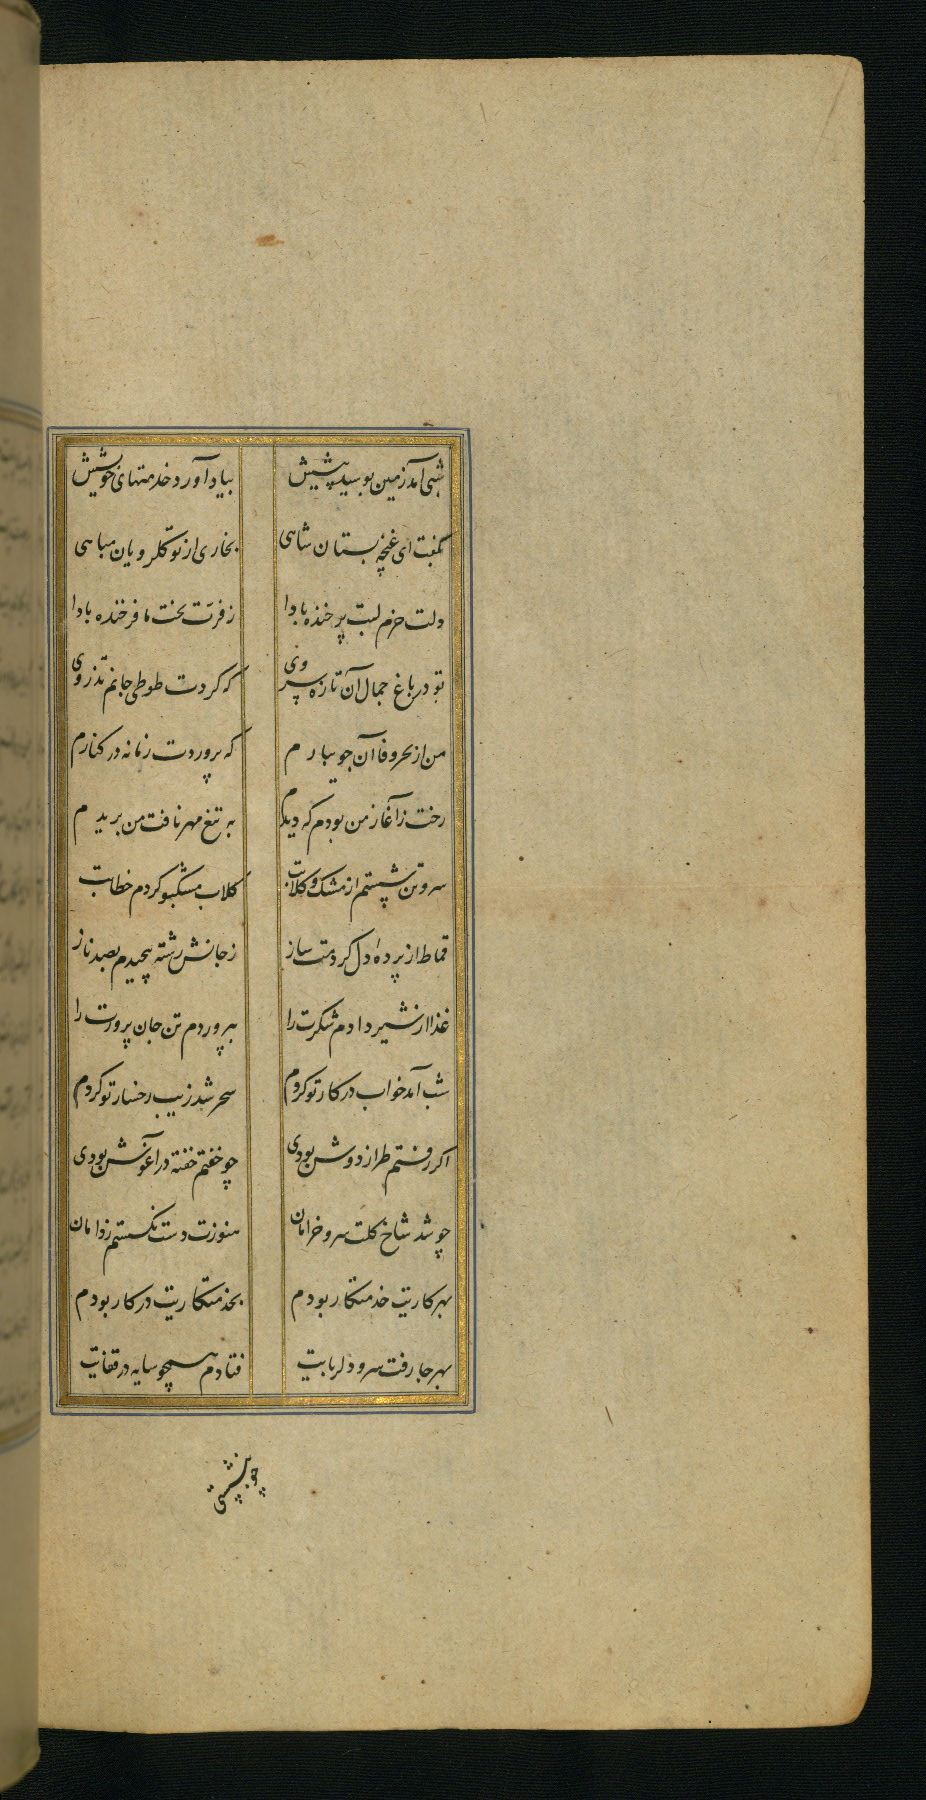 شبی آمد زمین بوسید پیشش بیاد آورد خدمتهای خویشش
بگفت ای غنچه بستان شاهی بخاری از تو گلرویان مباهی
دلت خرم لبت پر خنده بادا ز فرت بخت ما فرخنده بادا
تو در باغ جمال آن تازه سروی که کردت طوطی جانم تذروی
من از بحر وفا آن جویبارم که پروردت زمانه در کنارم
رخت ز آغاز من بودم که دیدم به تیغ مهر نافت من بریدم
سر و تن شستم از مشک و گلابت گلاب مشکبو کردم خطابت
قماط از پرده دل کردمت ساز ز جانش رشته پیچیدم بصد ناز
غذا از شیر دادم شکرت را بپروردم تن جان پرورت را
شب آمد خواب در کار تو کردم سحر شد زیب رخسار تو کردم
اگر رفتم طراز دوش بودی چو خفتم خفته در آغوش بودی
چو شد شاخ گلت سرو خرامان هنوزت دست نگسستم ز دامان
بهر کاریت خدمتکار بودم بخدمتکاریت در کار بودم
بهر جا رفت سرو دلربایت فتادم همچو سایه در قفایت
چو بنشستی